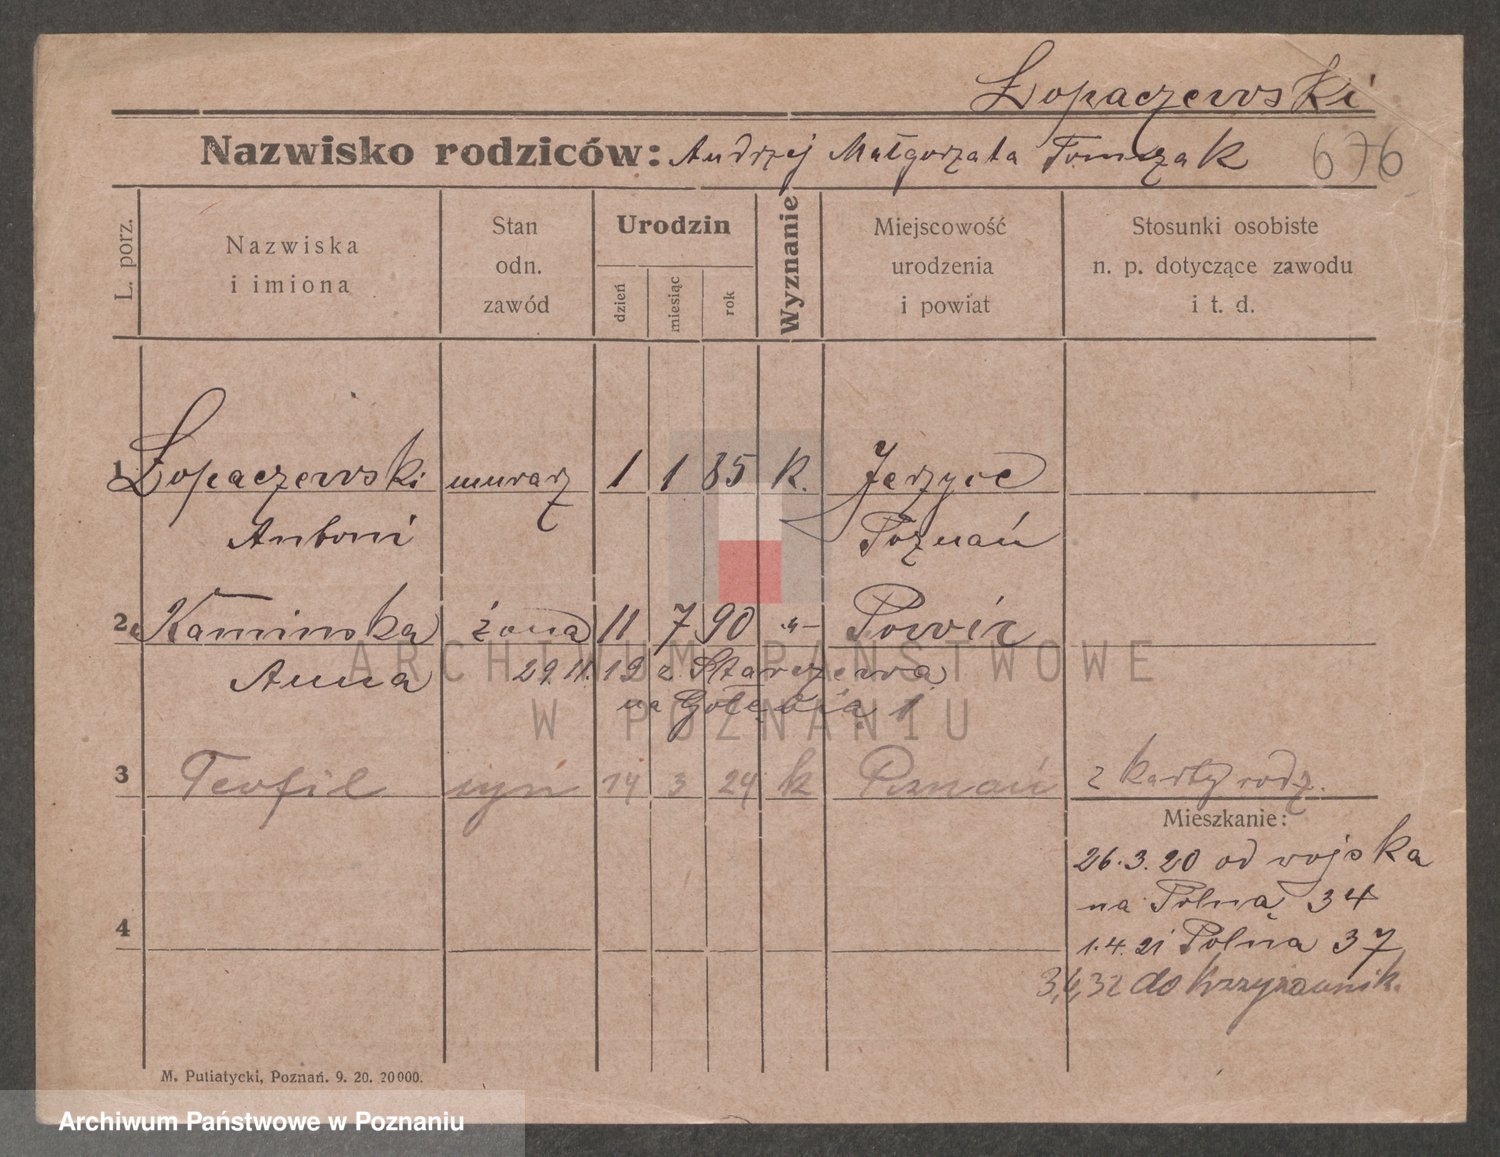 Łopaczewski
Nazwisko rodziców: Andrzej Małgorzata Tomczak 676
L. porz.
Nazwiska
i imiona
Stan
odn.
zawód
Urodzin
dzień
miesiąc
rok
Wyznanie
Miejscowość
urodzenia
i powiat
Stosunki osobiste
n. p. dotyczące zawodu
i t. d.
1 Łopaczewski murarz 1 1 85 k. Jerzyce
Antoni Poznań
2 Kamińska żona 11 7 90 -"-
Anna 29.11.19 z Starczewa
na Gołębią 1
3 Teofil syn 14 3 24 k Poznań z karty rodz.
Mieszkanie:
26.3.20 od wojska
na Polną 34
4
1.4.21 Polna 37
3,6,32 do Krzyżownik.
M. Putiatycki, Poznań. 9. 20. 20000.
ARCHIWUM PAŃSTWOWE
W POZNANIU
Archiwum Państwowe w Poznaniu